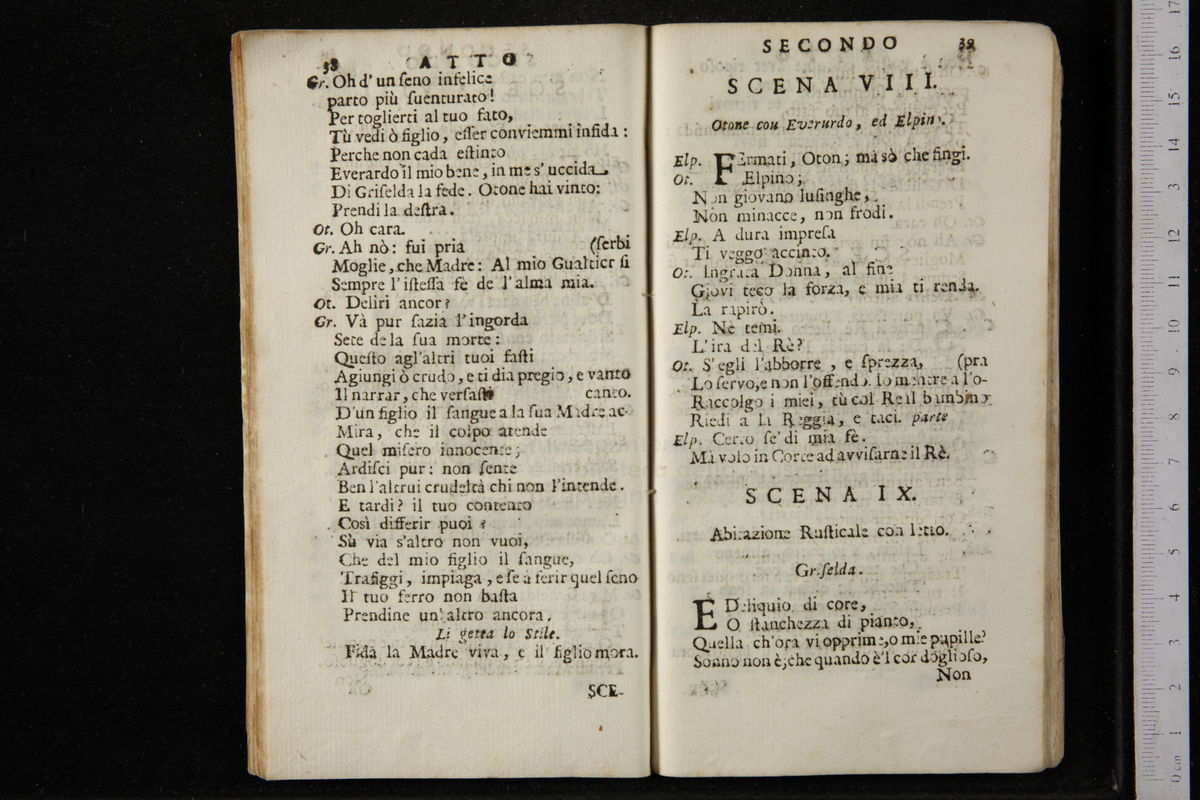 38 ATTO
Gr. Oh d' un ſeno infelice
parto più ſuenturato!
Per toglierti al tuo fato,
Tù vedi ò figlio, eſſer conviemmi infida:
Perche non cada eſtinto
Everardo il mio bene, in me s' uccida
Di Griſelda la fede. Otone hai vinto:
Prendi la deſtra.
Ot. Oh cara.
Gr. Ah nò: fui pria (ſerbi
Moglie, che Madre: Al mio Gualtier ſi
Sempre l' iſteſſa fè de l' alma mia.
Ot. Deliri ancor?
Gr. Và pur ſazia l' ingorda
Sete de la ſua morte:
Queſto agl'altri tuoi faſti
Agiungi ò crudo, e ti dia pregio, e vanto
Il narrar, che verſaſti canto.
D'un figlio il ſangue a la ſua Madre ac-
Mira, che il colpo atende
Quel miſero innocente;
Ardiſci pur: non ſente
Ben l'altrui crudeltà chi non l'intende.
E tardi? il tuo contento
Così differir puoi?
Sù via s'altro non vuoi,
Che del mio figlio il ſangue,
Trafiggi, impiaga, e ſe a ferir quel ſeno
Il tuo ferro non baſta
Prendine un' altro ancora.
Li getta lo Stile.
Fida la Madre viva, e il figlio mora.
SCE-
SECONDO 39
SCENA VIII.
Otone con Everardo, ed Elpino.
Elp. FErmati, Oton; ma sò che fingi.
Ot. Elpino;
Non giovano luſinghe,
Non minacce, non frodi.
Elp. A dura impreſa
Ti veggo accinto.
Ot. Ingrata Donna, al fine
Giovi teco la forza, e mia ti renda.
La rapirò.
Elp. Ne temi.
L' ira del Rè?
Ot. S' egli l'abborre, e ſprezza, (pra
Lo ſervo, e non l'offendo. Io mentre a l'o-
Raccolgo i miei, tù col Re il bambino
Riedi a la Reggia, e taci. parte
Elp. Certo ſe' di mia fè.
Mà volo in Corte ad avviſarne il Rè.
SCENA IX.
Abitazione Ruſticale con letto.
Griſelda.
E Deliquio di core,
O ſtanchezza di pianto,
Quella ch'ora vi opprime, o mie pupille?
Sonno non è; che quando è'l cor doglioſo,
Non